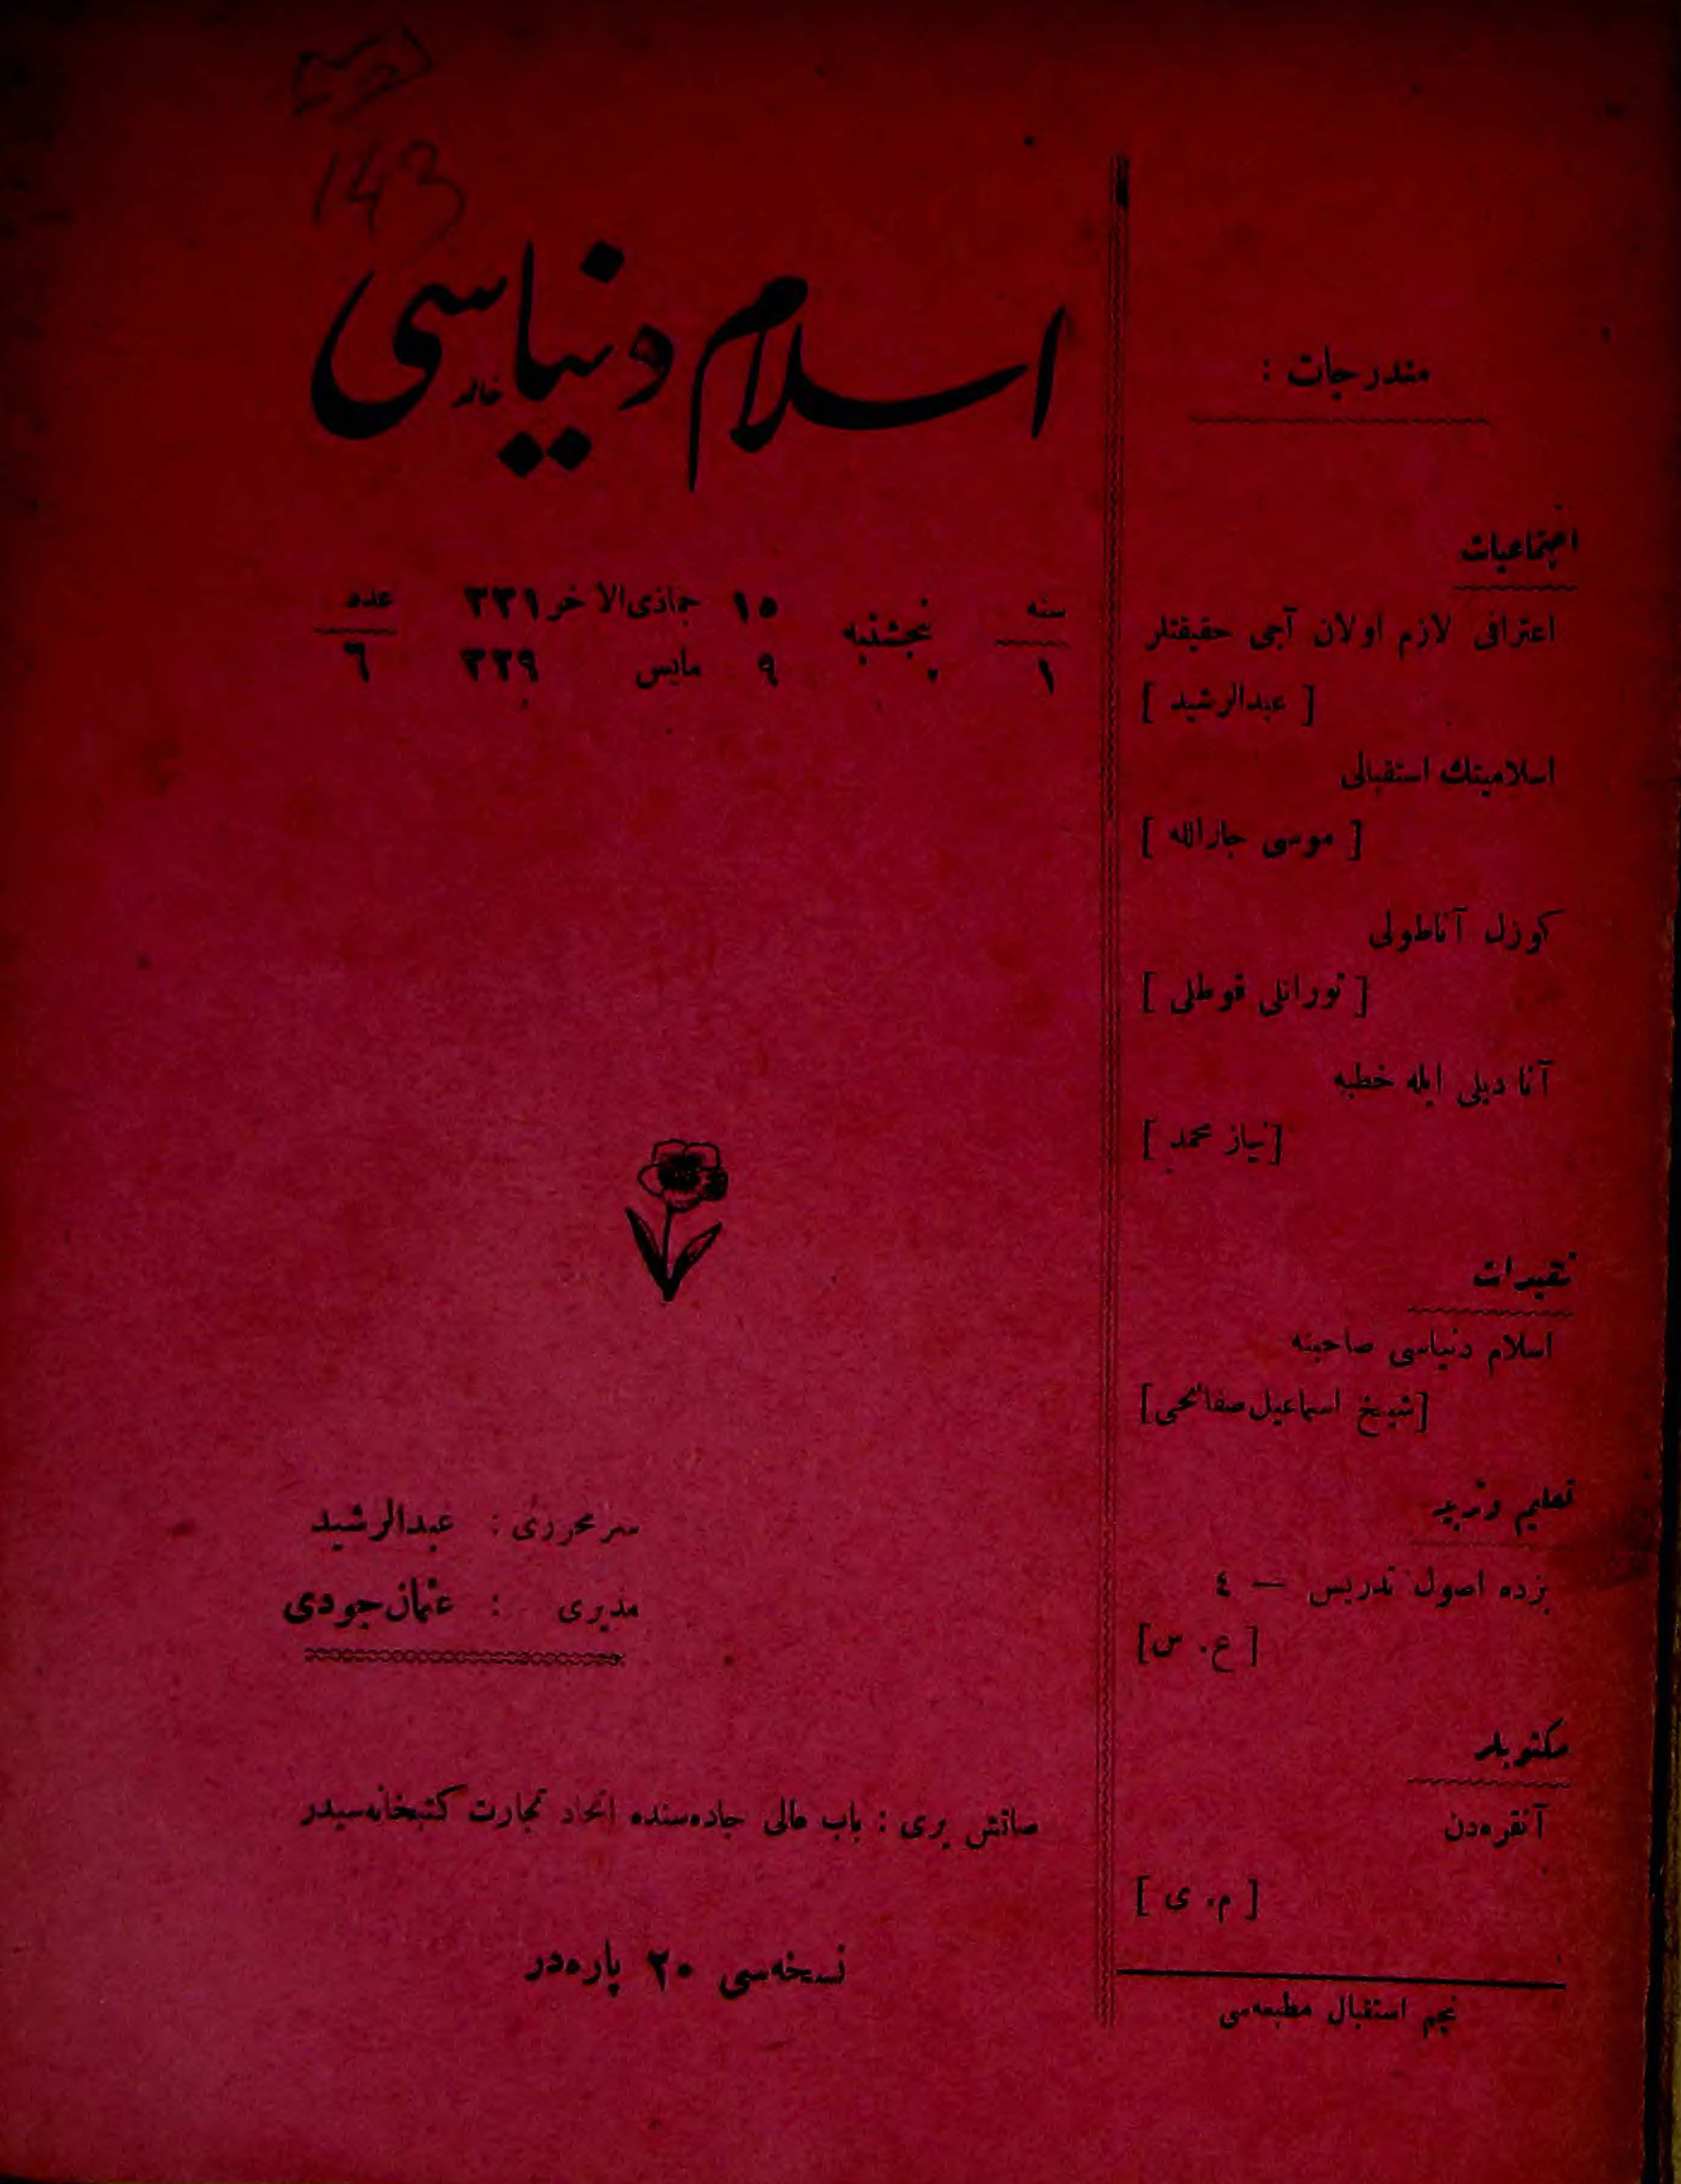 143
اسلام دنیاسی
سنه ١ پنجشنبه ١٥ جماذی الاخر ٣٣١ عدد ٦
٩ مایس ٣٢٩
مندرجات :
اجتماعیات
اعترافی لازم اولان آجی حقیقتلر
[ عبدالرشید ]
اسلامیتك استقبالی
[ موسی جارالله ]
كوزل آناطولی
[ تورانلی قوطلی ]
آنا دیلی ایله خطبه
[نیاز محمد ]
تنقیدات
اسلام دنیاسی صاحبنه
[شیخ اسماعیل صفائحی]
تعلیم وتربیه
بزده اصول تدریس — ٤
[ ع. س]
مكتوبلر
آنقره‌دن
[ م. ی ]
نجم استقبال مطبعه‌سی
سرمحرری : عبدالرشید
مدیری : عثمان جودی
صاتش یری : باب عالی جاده‌سنده اتحاد تجارت كتبخانه‌سیدر
نسخه‌سی ٢٠ پاره‌در